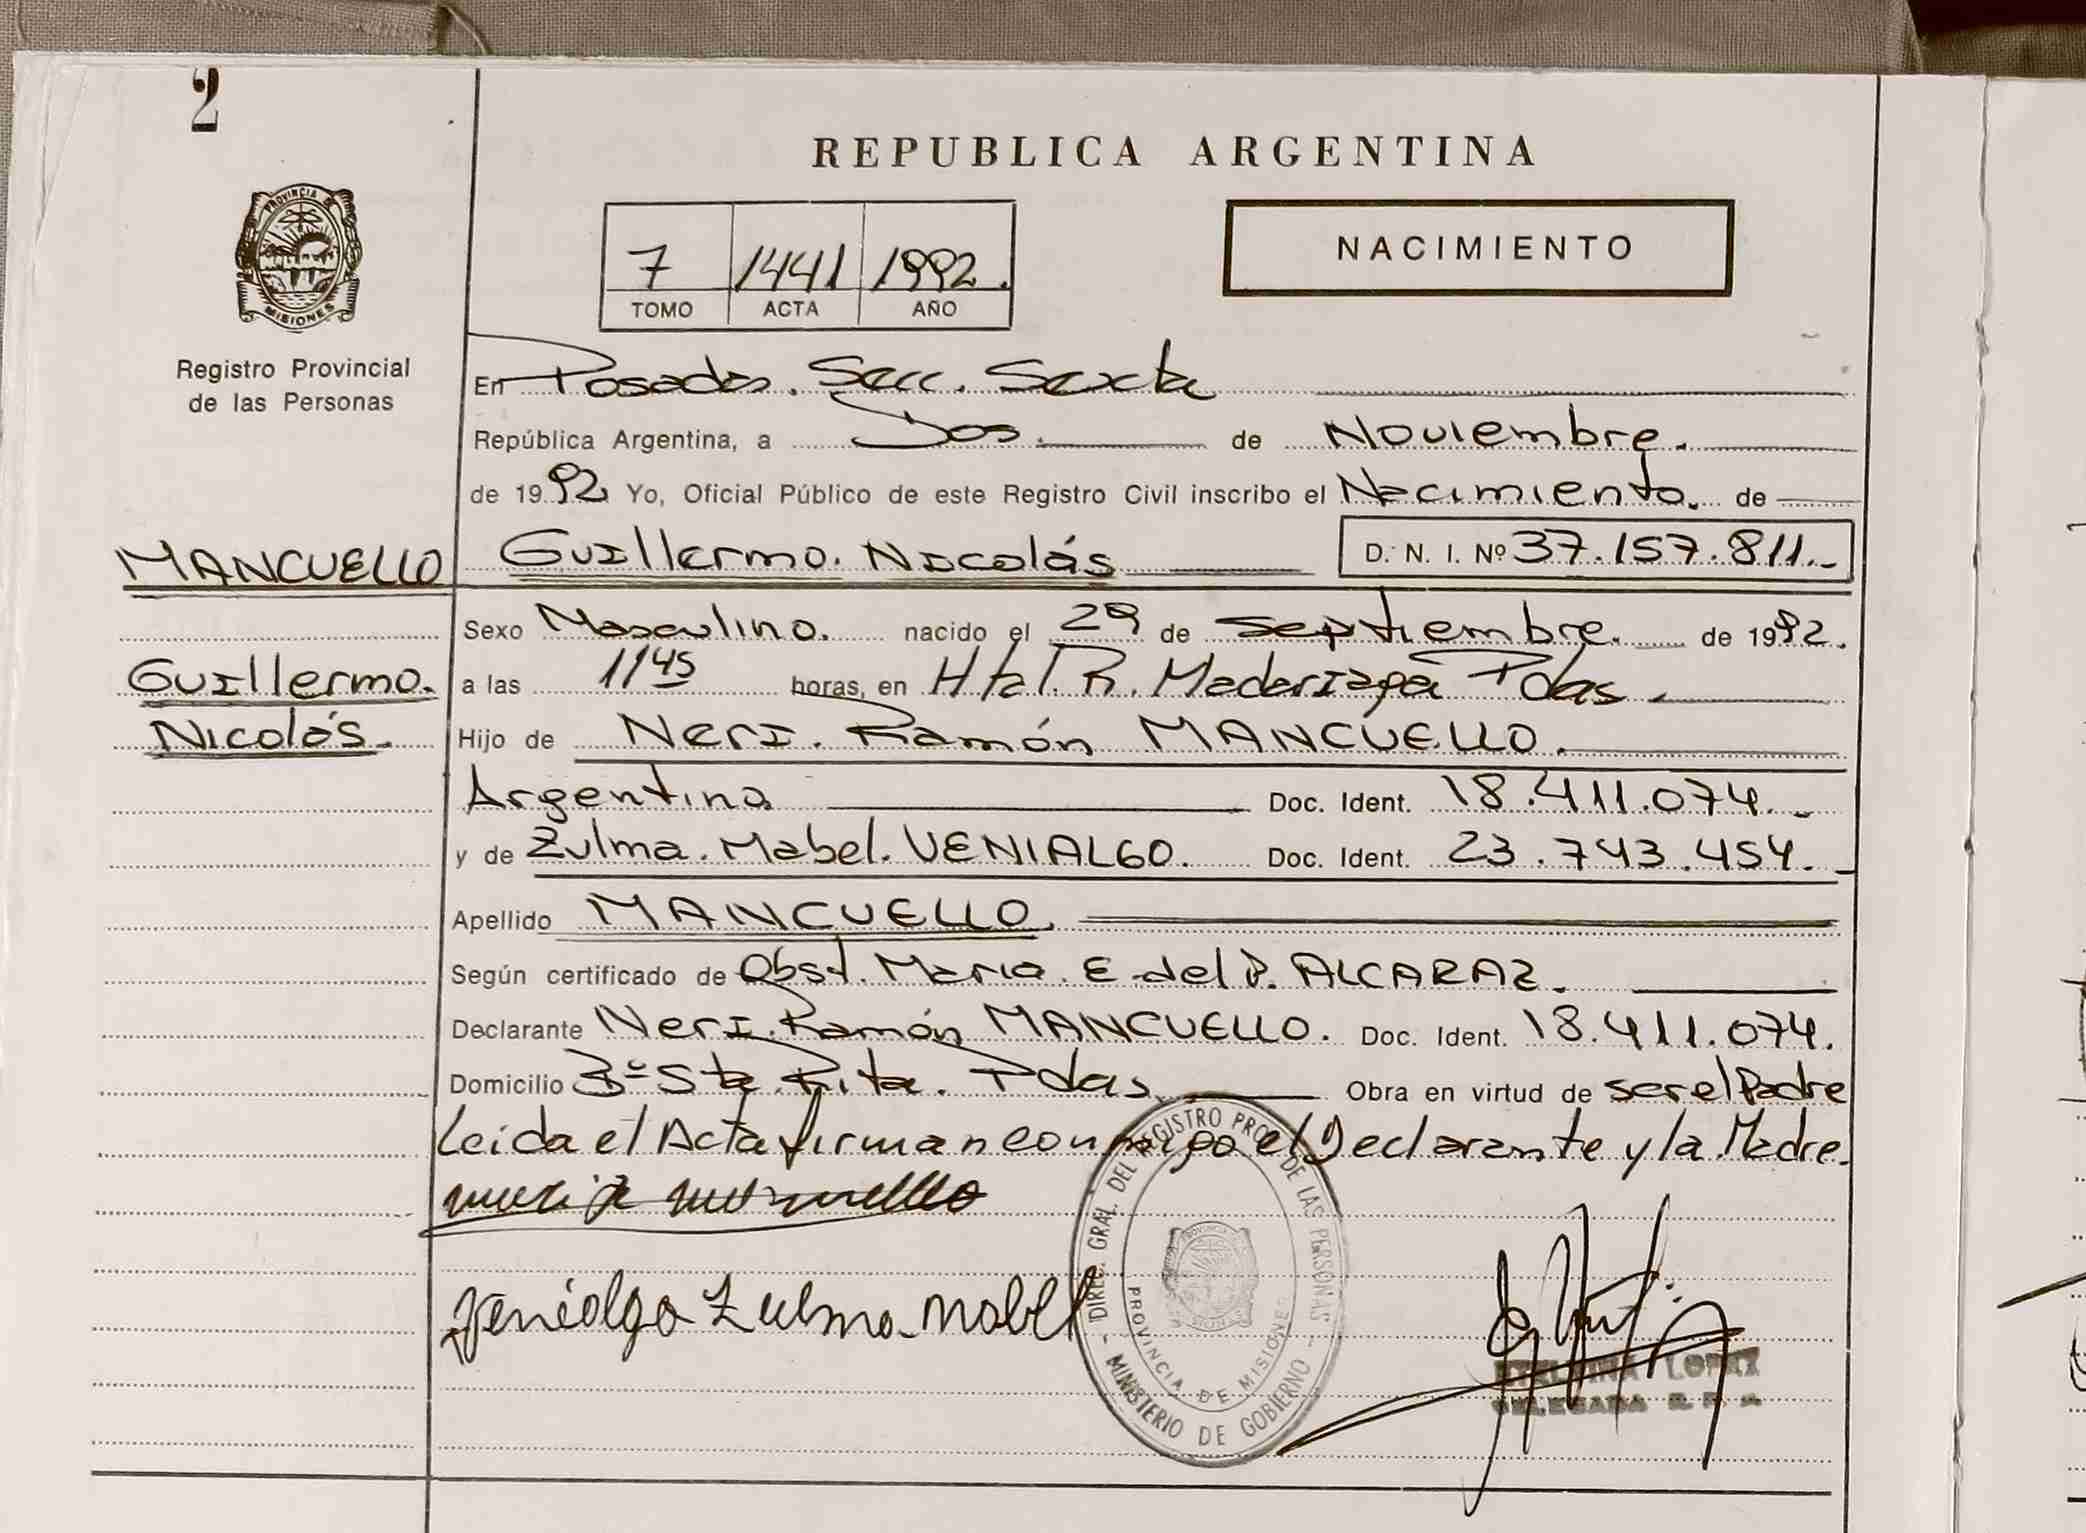 2
REPUBLICA ARGENTINA
PROVINCIA DE
MISIONES
Registro Provincial
de las Personas
7 1441 1992.
TOMO ACTA AÑO
NACIMIENTO
En Posadas. Secc. Sexta
República Argentina, a Dos. de Noviembre.
de 1992 Yo, Oficial Público de este Registro Civil inscribo el Nacimiento. de
MANCUELLO Guillermo. Nicolás D. N. I. Nº 37.157.811.
Sexo Masculino. nacido el 29 de Septiembre. de 1992.
Guillermo. a las 11 45 horas, en Htal. R. Madariaga Pdas.
Nicolás. Hijo de Neri. Ramón MANCUELLO.
Argentina Doc. Ident. 18.411.074.
y de Zulma. Mabel. VENIALGO. Doc. Ident. 23.743.454.
Apellido MANCUELLO.
Según certificado de Obst. Maria. E. del P. ALCARAZ.
Declarante Neri. Ramón MANCUELLO. Doc. Ident. 18.411.074.
Domicilio Bº Sta Rita. Pdas. Obra en virtud de ser el Padre
Leida el Acta firman conmigo el Declarante y la Madre.
Venialgo Zulma Mabel
DIREC. GRAL. DEL REGISTRO PROV. DE LAS PERSONAS
PROVINCIA DE MISIONES
MINISTERIO DE GOBIERNO
LOPEZ
DELEGADA R. P.